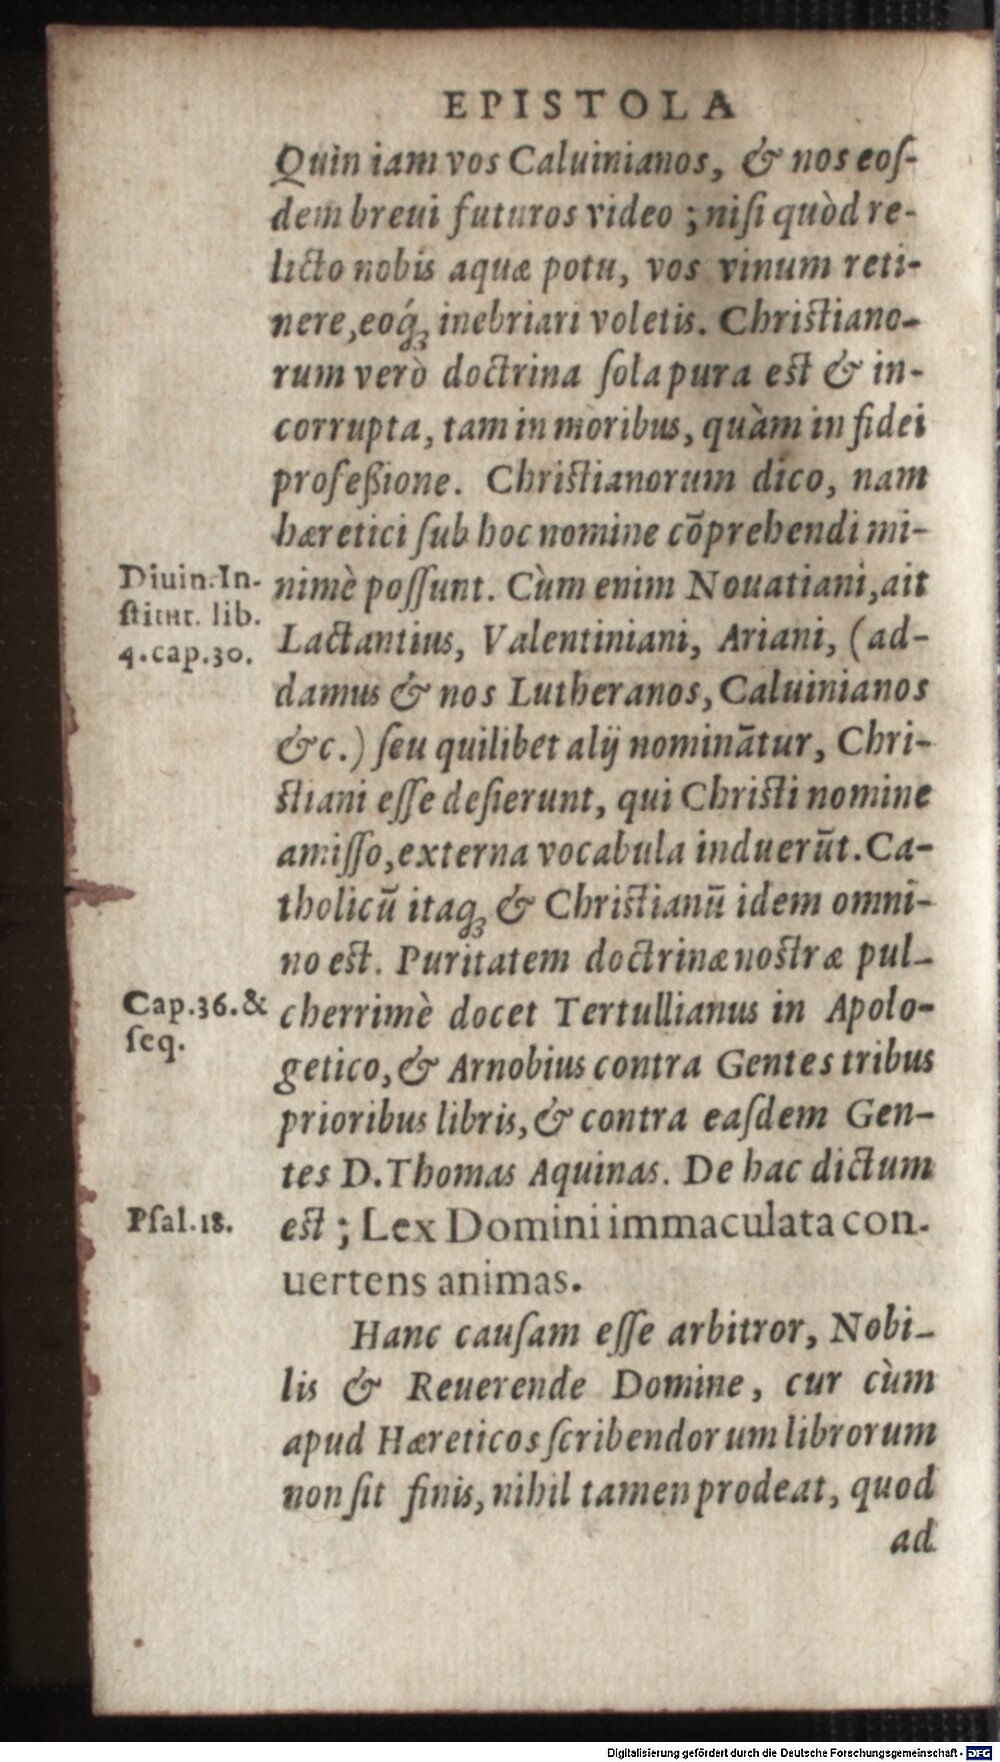 EPISTOLA
Quin iam vos Caluinianos, & nos eoſ-
dem breui futuros video ; niſi quòd re-
licto nobis aquæ potu, vos vinum reti-
nere, eoq́ꝫ inebriari voletis. Chriſtiano-
rum verò doctrina ſola pura eſt & in-
corrupta, tam in moribus, quàm in fidei
profeßione. Chriſtianorum dico, nam
hæretici ſub hoc nomine cōprehendi mi-
Diuin. In-
ſtitut. lib.
4. cap. 30.
nimè poſſunt. Cùm enim Nouatiani, ait
Lactantius, Valentiniani, Ariani, (ad-
damus & nos Lutheranos, Caluinianos
&c.) ſeu quilibet alij nominātur, Chri-
ſtiani eſſe deſierunt, qui Chriſti nomine
amiſſo, externa vocabula induerūt. Ca-
tholicū itaqꝫ & Chriſtianū idem omni-
no eſt. Puritatem doctrinæ noſtræ pul-
Cap. 36. &
ſeq.
cherrimè docet Tertullianus in Apolo-
getico, & Arnobius contra Gentes tribus
prioribus libris, & contra eaſdem Gen-
tes D. Thomas Aquinas. De hac dictum
Pſal. 18.
eſt ; Lex Domini immaculata con-
uertens animas.
Hanc cauſam eſſe arbitror, Nobi-
lis & Reuerende Domine, cur cùm
apud Hæreticos ſcribendorum librorum
non ſit finis, nihil tamen prodeat, quod
ad
Digitalisierung gefördert durch die Deutsche Forschungsgemeinschaft - DFG